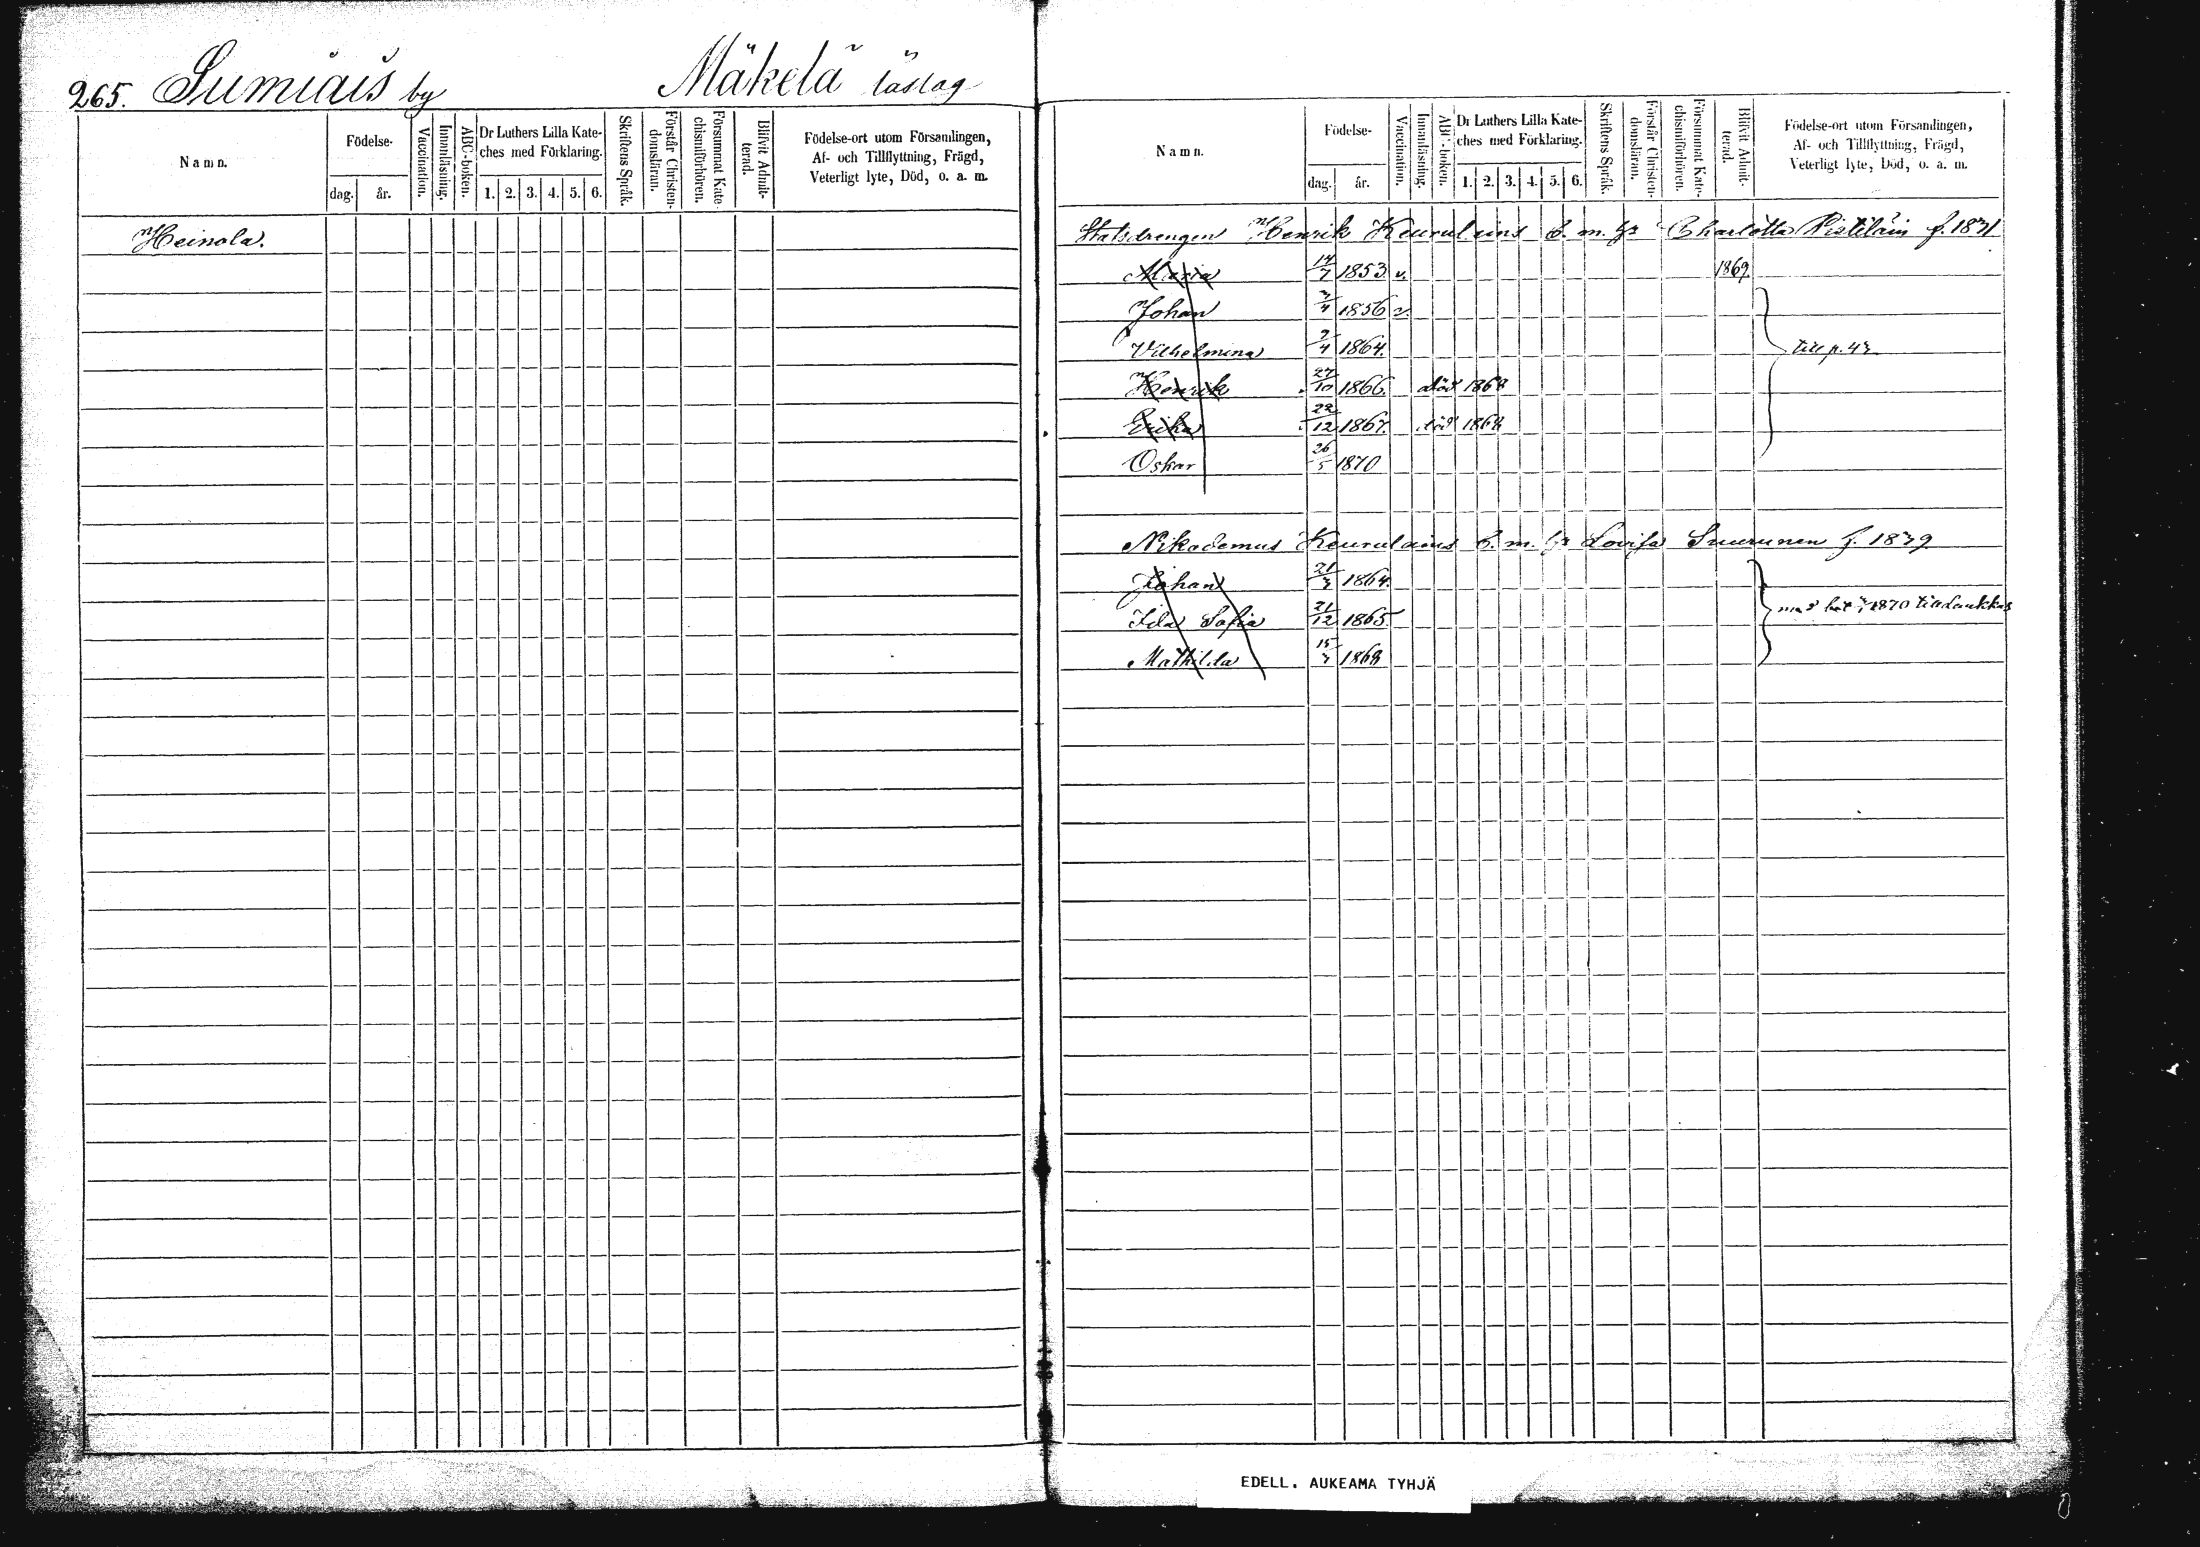 265. Sumiais by Mäkelä läslag
Namn.
Födelse-
dag. år.
Vaccination.
Innanläsning.
ABC-boken.
Dr Luthers Lilla Kate-
ches med Förklaring.
1. 2. 3. 4. 5. 6.
Skriftens Språk.
Förstår Christen-
domsläran.
Försummat Kate-
chismiförhören.
Blifvit Admit-
terad.
Födelse-ort utom Församlingen,
Af- och Tillflyttning, Frägd,
Veterligt lyte, Död, o. a. m.
Heinola.
Namn.
Födelse-
dag. år.
Vaccination.
Innanläsning.
ABC-boken.
Dr Luthers Lilla Kate-
ches med Förklaring.
1. 2. 3. 4. 5. 6.
Skriftens Språk.
Förstår Christen-
domsläran.
Försummat Kate-
chismiförhören.
Blifvit Admit-
terad.
Födelse-ort utom Församlingen,
Af- och Tillflyttning, Frägd,
Veterligt lyte, Död, o. a. m.
Statsdrengen Henrik Keurulains b. m. Charlotta Pistiläin f. 1831
Maria 14/7 1853 v. 1869.
Johan 3/4 1856 v.
Vilhelmina 2/4 1864. till p. 43
Henrik 27/10 1866. död 1868
Erika 22/12 1867. död 1868
Oskar 26/5 1870
Nikodemus Keurulains b. m. Lovisa Suurunen f. 1839
Johan 21/3 1864.
Ida Sofia 21/12 1865.
med bet 1870 till Laukkas
Mathilda 15/3 1868
EDELL. AUKEAMA TYHJÄ